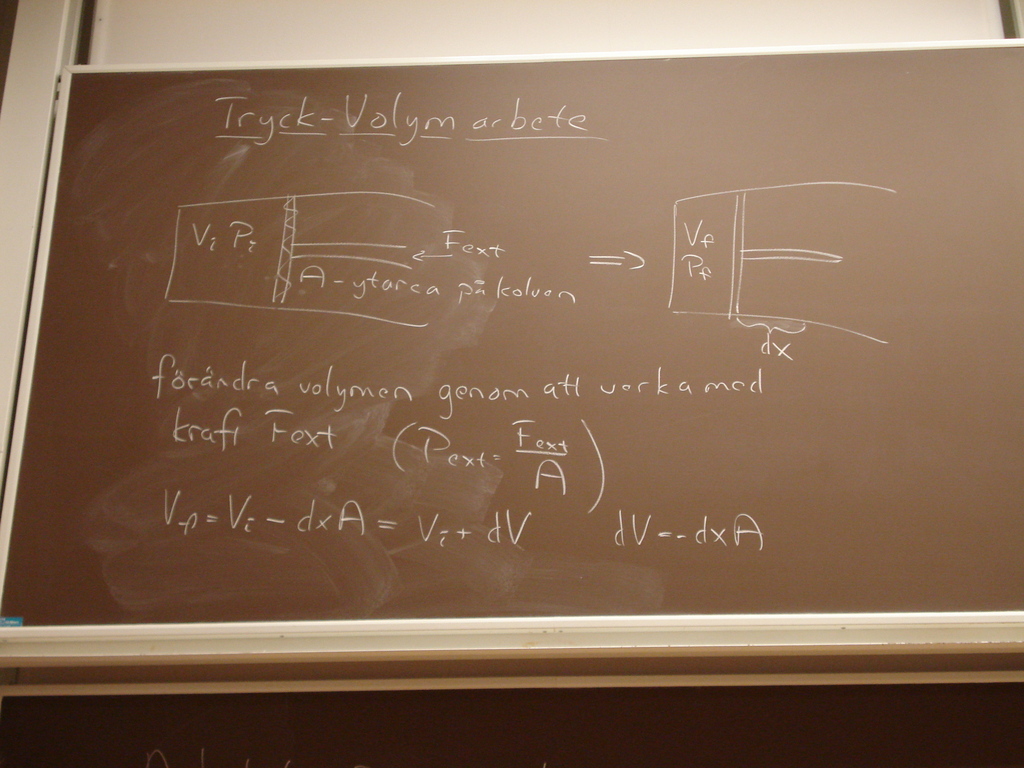 Tryck-Volym arbete
Vi Pi
Fext
A-ytarea på kolven
Vf
Pf
dx
förändra volymen genom att verka med
kraft Fext (Pext = Fext/A)
Vf = Vi - dxA = Vi + dV dV = -dxA